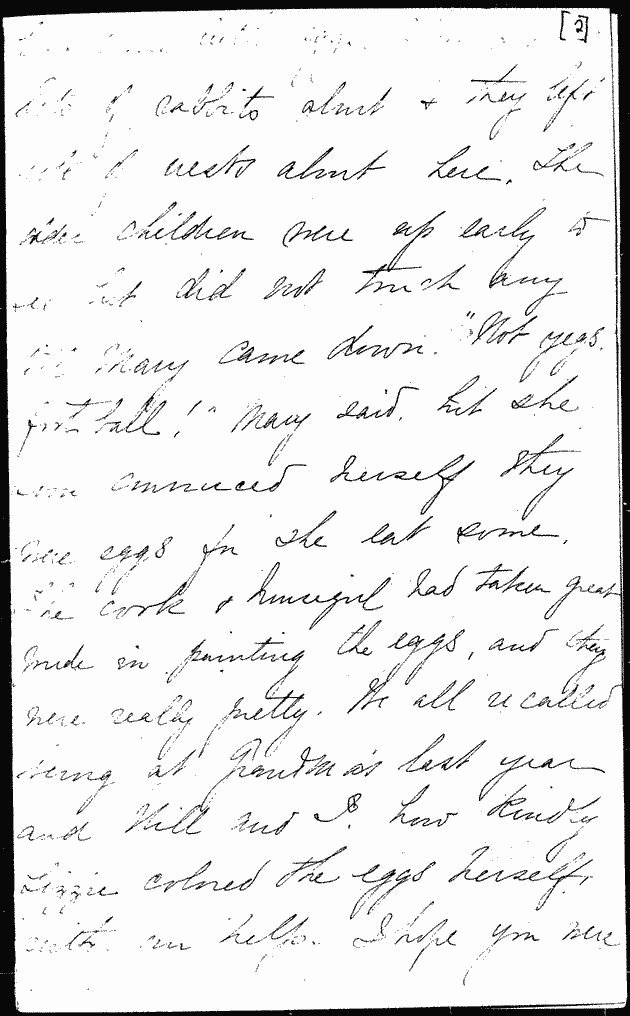 [2]
with eggs
lots of rabbits about & they left
lots of nests about here. The
older children were up early to
see but did not touch any
till Mary came down. "Not yegs.
foot ball!" Mary said. but she
soon convinced herself they
were eggs for she eat some.
The cook & housegirl had taken great
pride in painting the eggs, and they
were really pretty. We all recalled
being at Grandma's last year
and Will and I. how kindly
Lizzie colored the eggs herself,
with our help. I hope you were